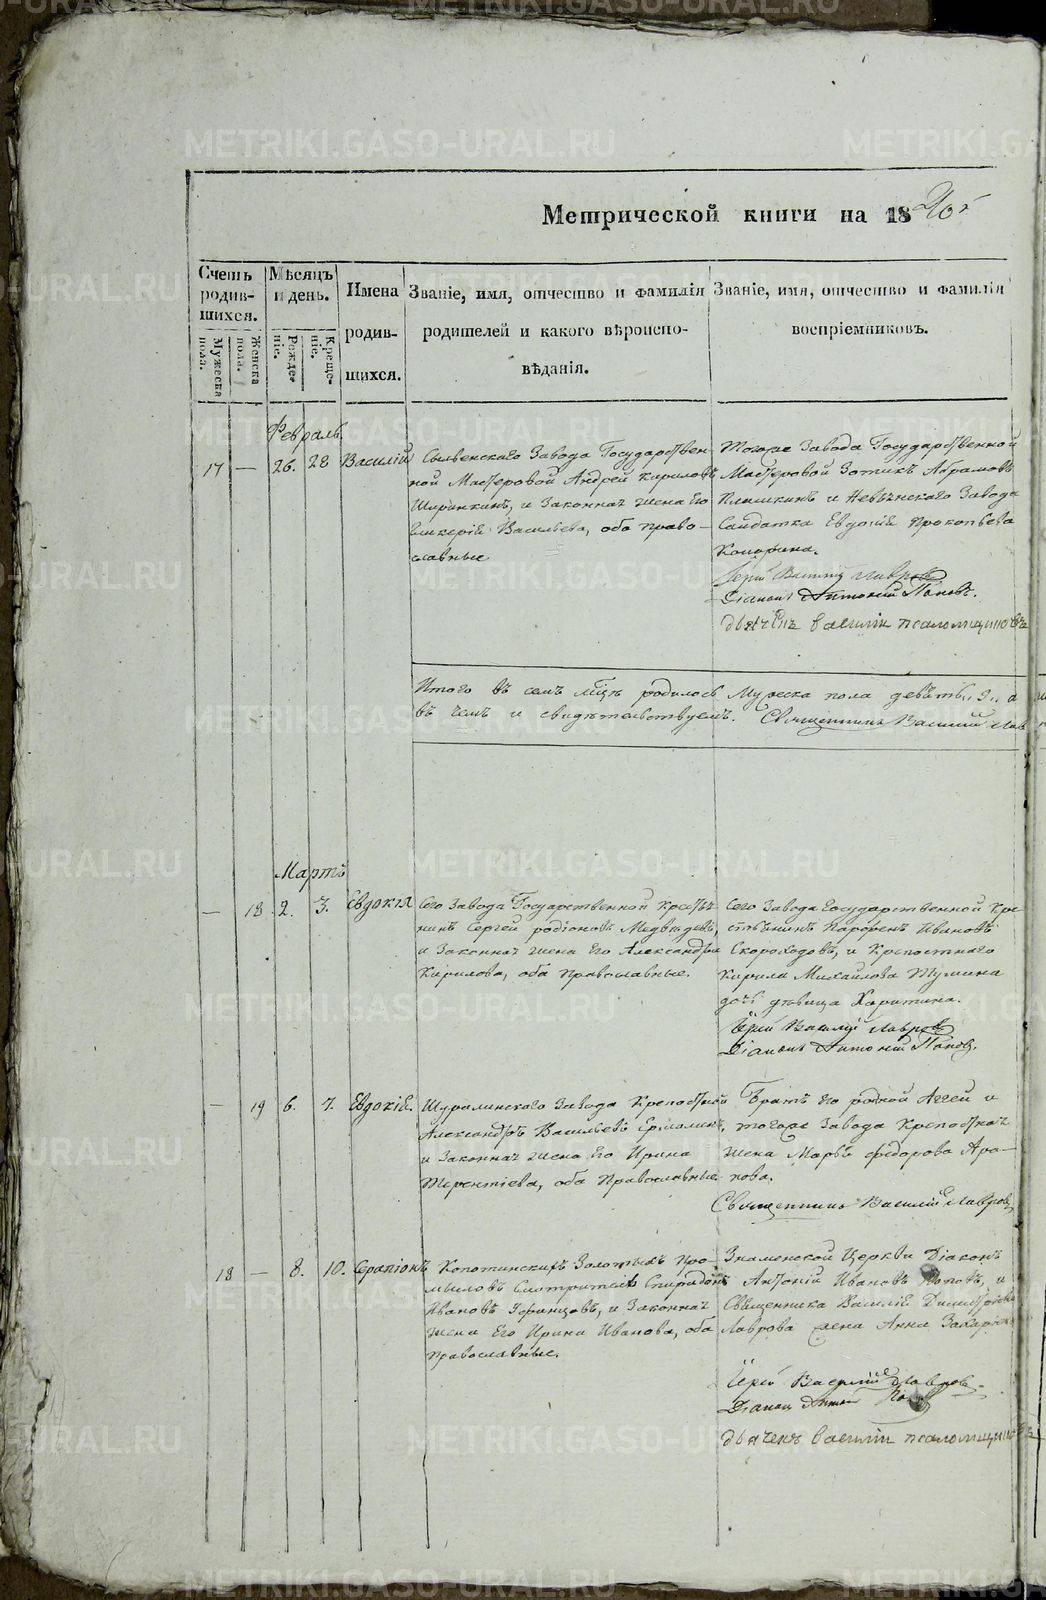 Метрической книги на 18
Счетъ родив-шихся.
Мужеска пола.
Женска пола.
Мѣсяцъ и день.
Рожде-ніе.
Креще-ніе.
Имена родив-шихся.
Званіе, имя, отчество и фамилія родителей и какого вѣроиспо-вѣданія.
Званіе, имя, отчество и фамилія воспріемниковъ.
Февраль.
17 — 26. 28 Василій
Сылвенскаго Завода Государствен-
ной Мастеровой Андрей Кириловъ
и Законная жена Его
Васильева, оба право-
славные
Тогоже Завода Государственной
Мастеровой Зотикъ Абрамовъ
и Невьянскаго Завода
Салдатка Евдокія Прокопьева
Іерей Василій Лавровъ
Діаконъ Антоній Поповъ.
дьячекъ василій псаломщиковъ
Итого въ семъ мцѣ родилось Мужеска пола девять „9„ а
въ чемъ и свидѣтельствуемъ. Священникъ Василій Лав
Мартъ
— 18 2. 3. Евдокія
Сего Завода Государственной Кресть
нинъ Сергей родіоновъ Медведевъ,
и Законная жена Его Александра
Кирилова, оба Православные.
Сего Завода Государственной Кре
стьянинъ Парфенъ Ивановъ
Скороходовъ, и Крепостнаго
Кирила Михайлова Тумина
дочь девица Харитина.
Іерей Василій Лавровъ
Діаконъ Антоній Поповъ.
— 19 6. 7. Евдокія.
Шуралинскаго Завода Крепостной
Александръ Васильевъ
и Законная жена Его Ирина
Терентіева, оба Православные
Братъ Его родной Аггей и
тогоже Завода Крепостная
жена Марья федорова Ара-
пова.
Священникъ Василій Лавровъ
18 — 8. 10. Серапіонъ
Золотыхъ про-
мысловъ Смотритель Спиридонъ
Ивановъ и Законная
жена Его Ирина Иванова, оба
Православные.
Знаменской Церкви Діаконъ
Антоній Ивановъ Поповъ, и
Священника Василія
Лаврова жена Анна
Іерей Василій Лавровъ
Діаконъ Антоній
дьячекъ василій псаломщиковъ
METRIKI.GASO-URAL.RU